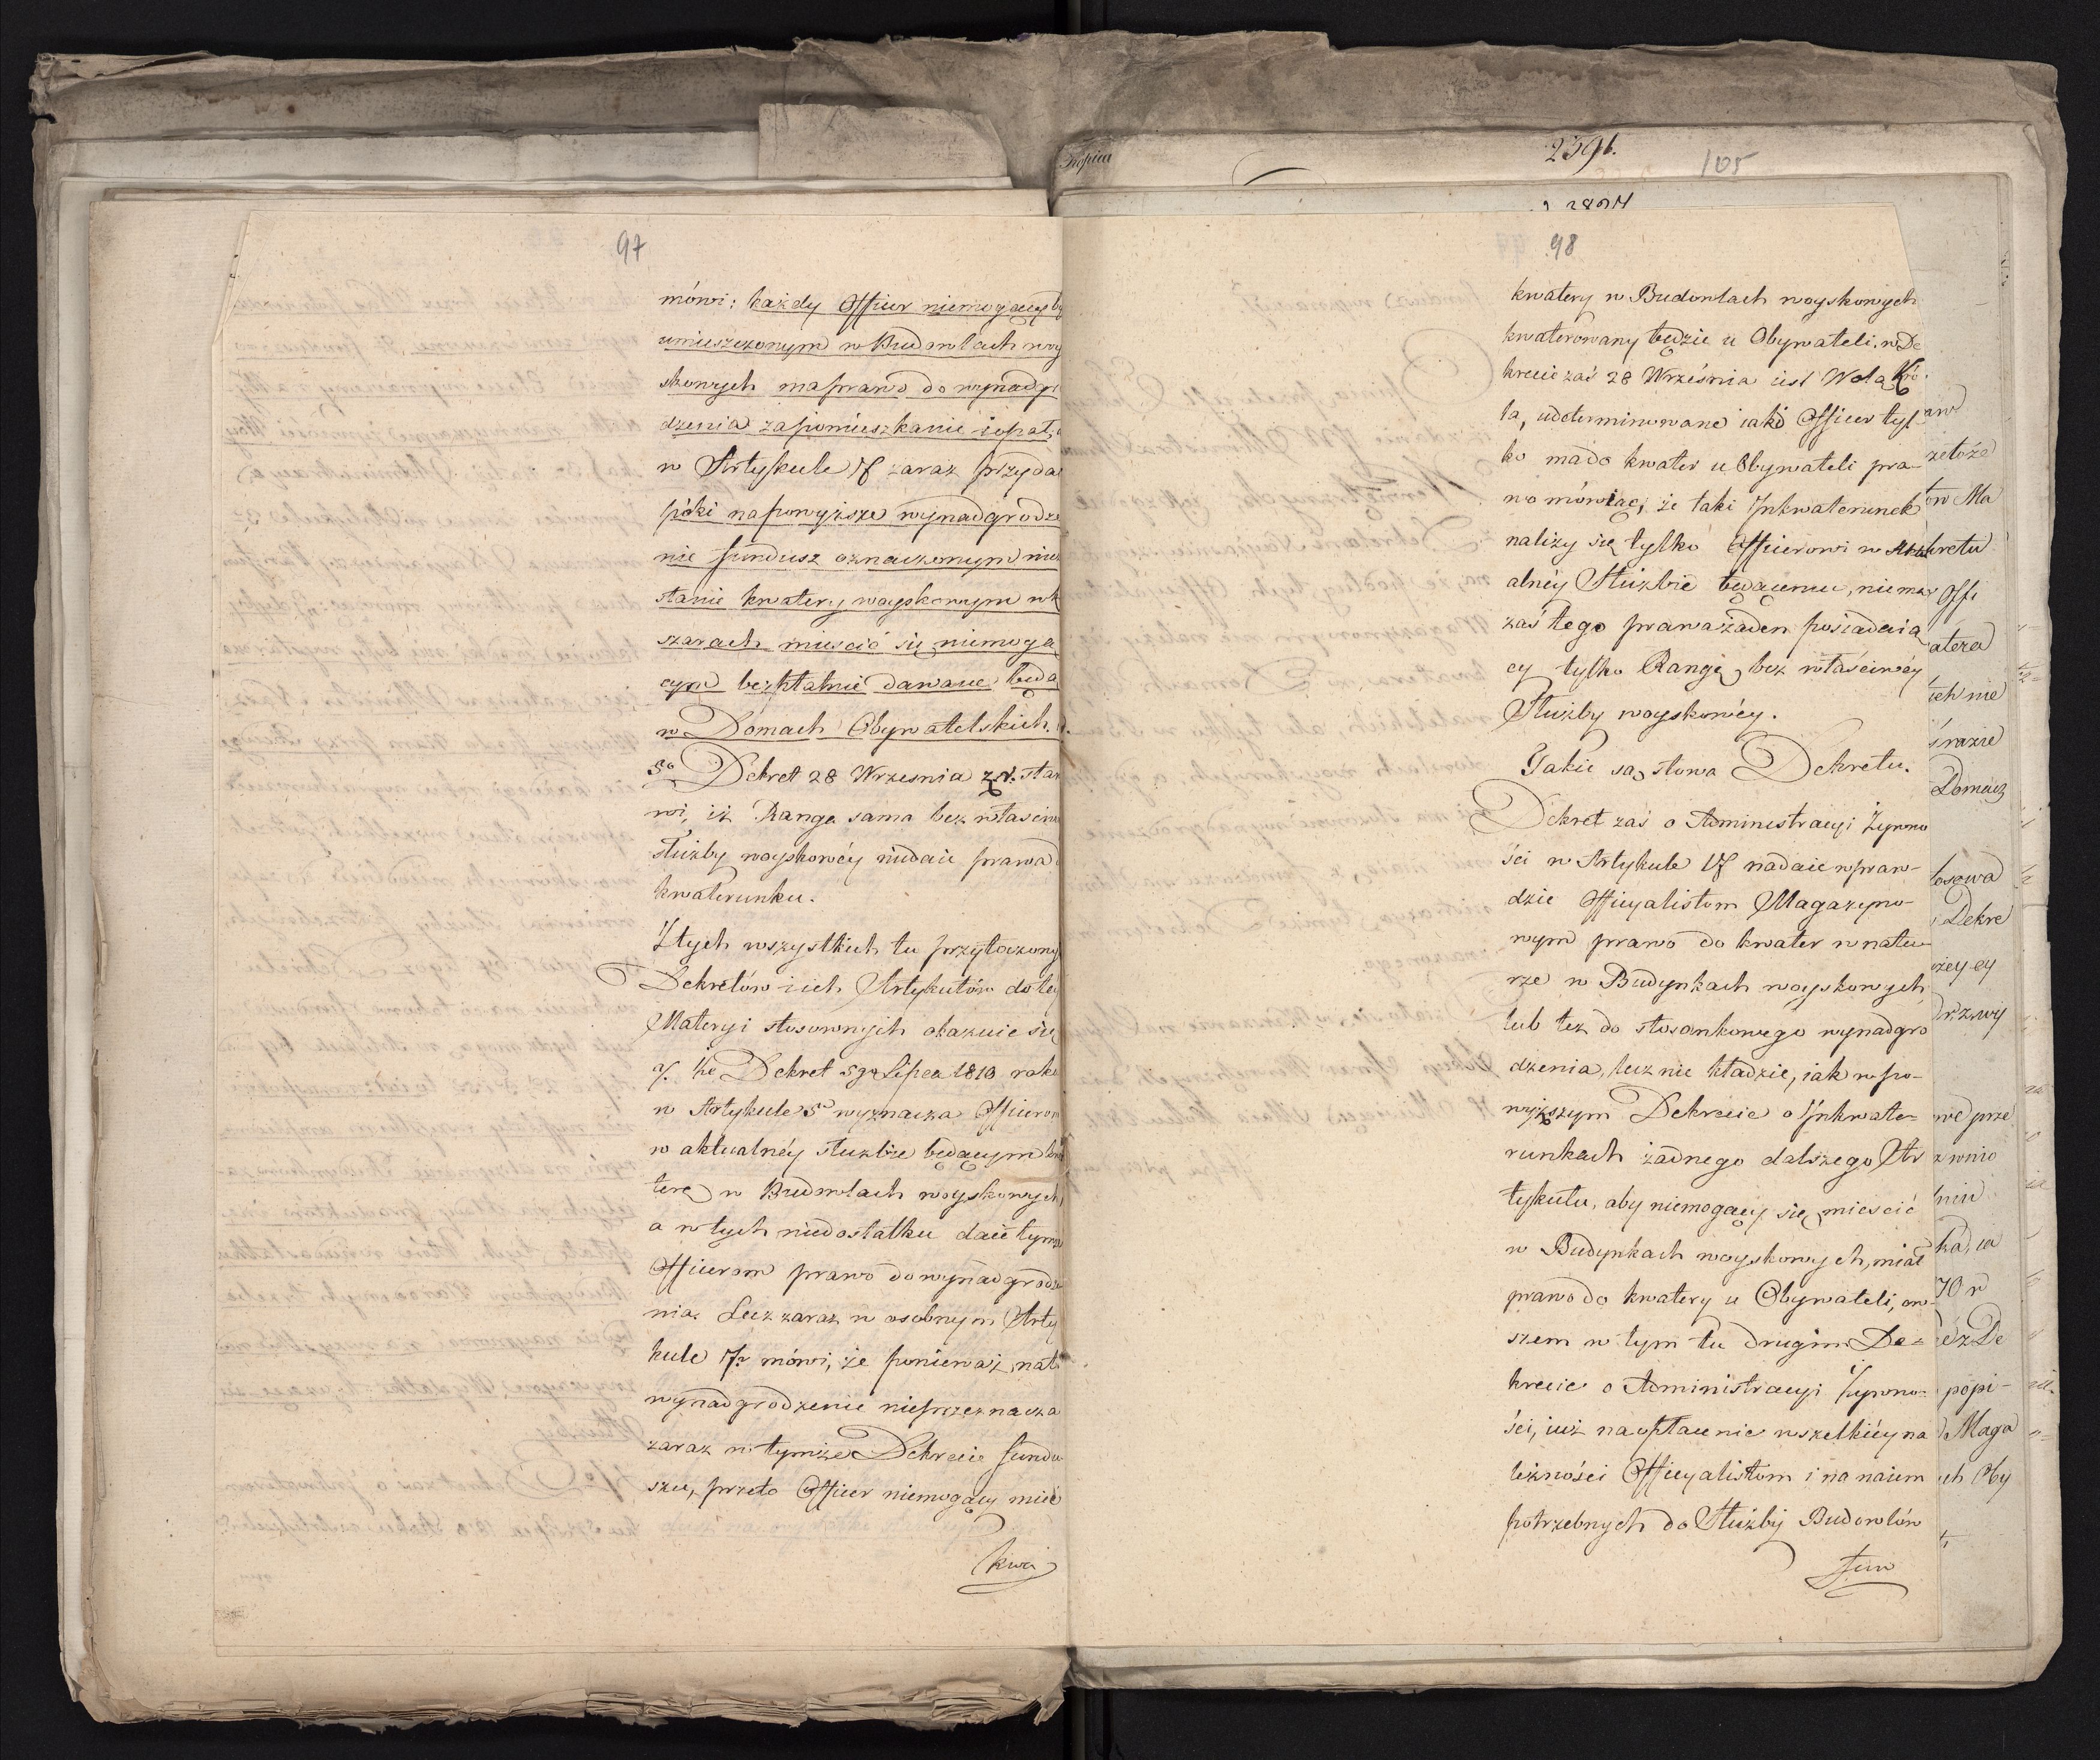 97
mówi: każdy Officer niemogący by
umieszczonym w Budowlach woy
skowych ma prawo do wynadgr
dzenia za pomieszkanie i opał,
w Artykule 17 zaraz przyda
póki na powyższe wynadgrodze
nie fundusz oznaczonym nie
stanie kwatery woyskowym w k
szarach mieścić się niemogą
cym bezpłatnie dawane będą
w Domach Obywatelskich.
5o Dekret 28 Września z. r. stan
wi, iż Ranga sama bez właściw
służby woyskowéy niedaie prawa
kwaterunku.
Z tych wszystkich tu przytoczony
Dekretów i ich Artykułów do téy
Materyi stosownych okazuie się
a/. że Dekret 5go Lipca 1810 roku
w Artykule 5o wyznacza Officerom
w aktualnéy służbie będącym kwa
terę w Budowlach woyskowych
a w tych niedostatku daie tym
Officerom prawo do wynadgrodze
nia. Lecz zaraz w osobnym Arty
kule 17. mówi, że ponieważ na to
wynadgrodzenie nieprzeznacza
zaraz w tymże Dekrecie fundu
szu, przeto Officer niemogący mieć
kwa
Kopica
2591.
105
98
kwatery w Budowlach woyskowych
kwaterowany będzie u Obywateli. w De
krecie zaś 28 Września iest Wolą Kró
la, udeterminowane iako Officer tyl
ko ma do kwater u Obywateli pra-
wo mówiąc, że taki Inkwaterunek
należy się tylko Officerowi w aktu
alnéy Służbie będącemu, niema
zaś tego prawa żaden posiadaią
cy tylko Rangę, bez właściwéy
Służby woyskowéy.
Takie są słowa Dekretu.
Dekret zaś o Administracyi Żywno
ści w Artykule 17 nadaie wpraw-
dzie Officyalistom Magazyno-
wym prawo do kwater w natu-
rze w Budynkach woyskowych
lub też do stosunkowego wynadgro
dzenia, lecz nie kładzie, iak w po-
wyższym Dekrecie o Inkwate-
runkach żadnego dalszego Ar
tykułu, aby niemogący się mieścić
w Budynkach woyskowych, miał
prawo do kwatery u Obywateli, ow-
szem w tym tu drugim De=
krecie o Administracyi żywno-
ści, iuż na opłacenie wszelkiéy na
leżności Officyalistom i na naiem
potrzebnych do Służby Budowlów
fun